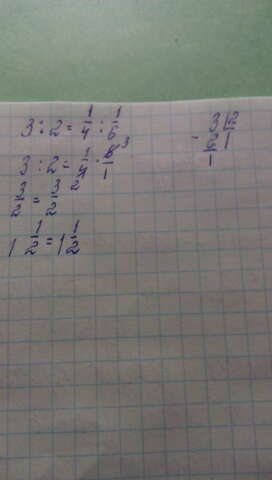 3 : 2 = 1/4 : 1/6
3 : 2 = 1/4 · 6/1 3
2
3/2 = 3/2
1 1/2 = 1 1/2
3 | 2
- 2 | 1
1